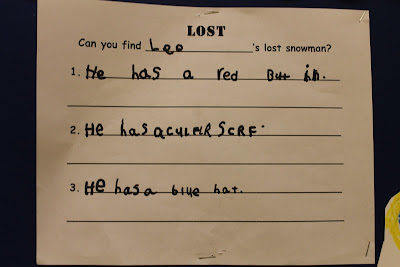 LOST
Can you find Leo 's lost snowman?
1. He has a red But in.
2. He has a CULER SCRF.
3. He has a blue hat.